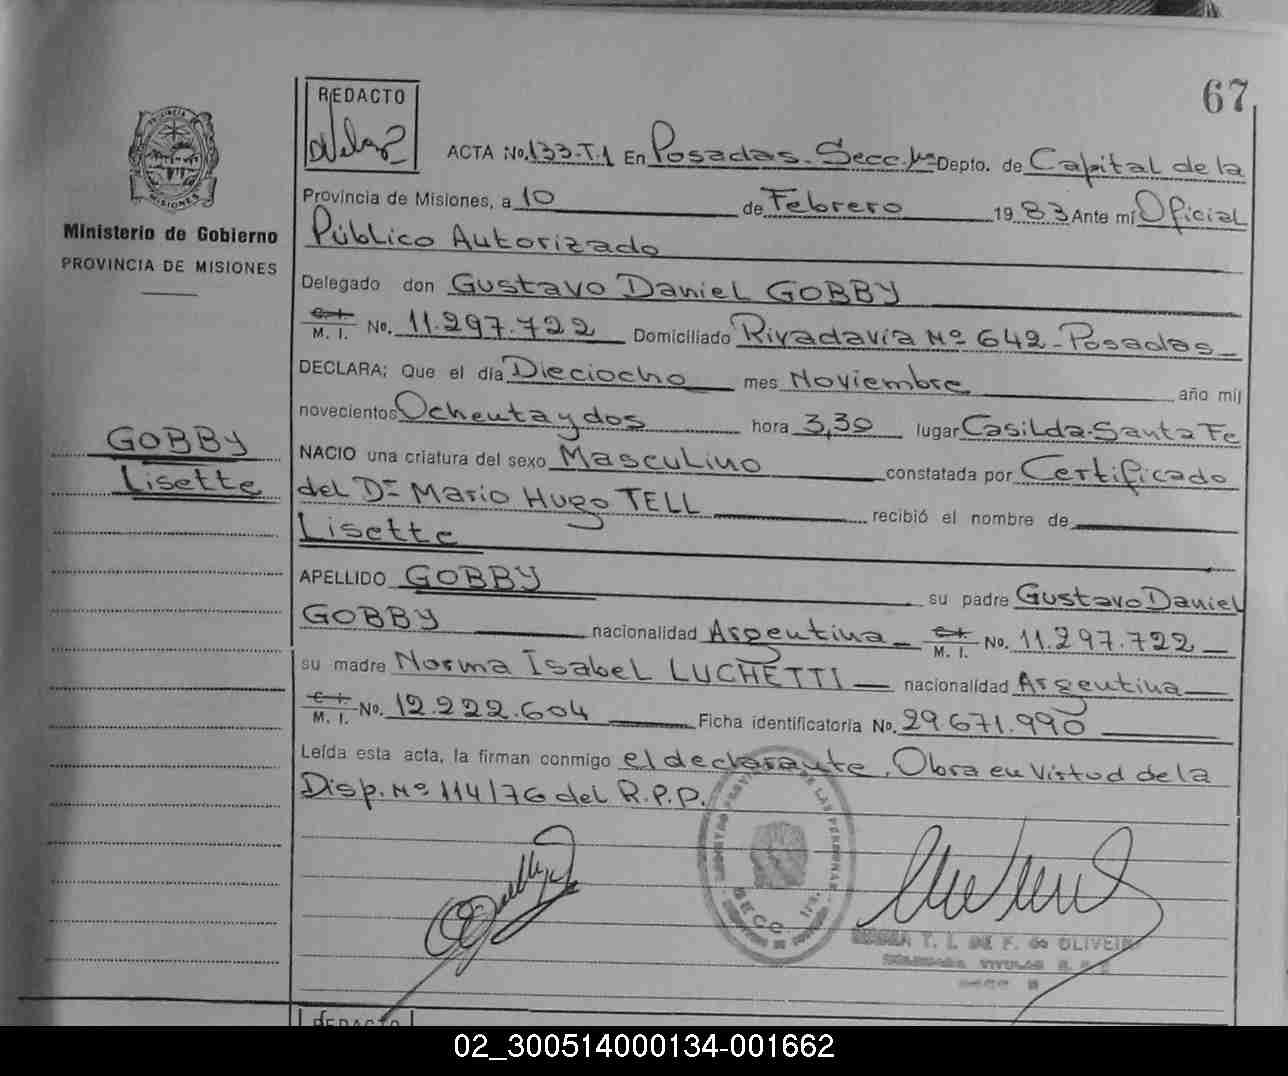 67
REDACTO
ACTA No. 133-T.1 En Posadas. Secc. 1ª Depto. de Capital de la
Provincia de Misiones, a 10 de Febrero 19 83 Ante mí Oficial
Público Autorizado
PROVINCIA DE
MISIONES
Ministerio de Gobierno
PROVINCIA DE MISIONES
Delegado don Gustavo Daniel GOBBY
C. I.
M. I. No. 11.297.722 Domiciliado Rivadavia Nº 642 - Posadas
DECLARA; Que el día Dieciocho mes Noviembre año mil
novecientos Ochenta y dos hora 3,30 lugar Casilda-Santa Fe
NACIO una criatura del sexo Masculino constatada por Certificado
del Dr Mario Hugo TELL recibió el nombre de
Lisette
GOBBY
Lisette
APELLIDO GOBBY su padre Gustavo Daniel
GOBBY nacionalidad Argentina C. I. M. I. No. 11.297.722
su madre Norma Isabel LUCHETTI nacionalidad Argentina
C. I.
M. I. No. 12.222.604 Ficha identificatoria No. 29.671.990
Leída esta acta, la firman conmigo el declarante. Obra en virtud de la
Disp. Nº 114/76 del R.P.P.
DE LAS PERSONAS
SECC. 1ra.
T. I. DE F. de OLIVEIRA
REDACTO
02_300514000134-001662